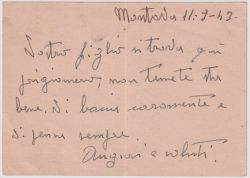 Mantova 11-9-43
Vostro figlio si trova qui
prigioniero, non temete sta
bene. Vi bacia caramente e
Vi pensa sempre.
Auguri e saluti.